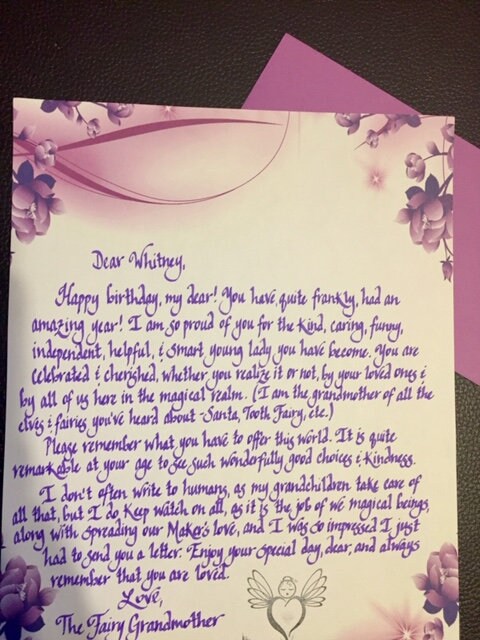 Dear Whitney,
Happy birthday, my dear! You have, quite frankly, had an
amazing year! I am so proud of you for the kind, caring, funny,
independent, helpful, & smart young lady you have become. You are
celebrated & cherished, whether you realize it or not, by your loved ones &
by all of us here in the magical realm. (I am the grandmother of all the
elves & fairies you've heard about - Santa, Tooth Fairy, etc.)
Please remember what you have to offer this world. It is quite
remarkable at your age to see such wonderfully good choices & kindness.
I don't often write to humans, as my grandchildren take care of
all that, but I do keep watch on all, as it is the job of we magical beings,
along with spreading our Maker's love, and I was so impressed I just
had to send you a letter. Enjoy your special day, dear, and always
remember that you are loved.
Love,
The Fairy Grandmother